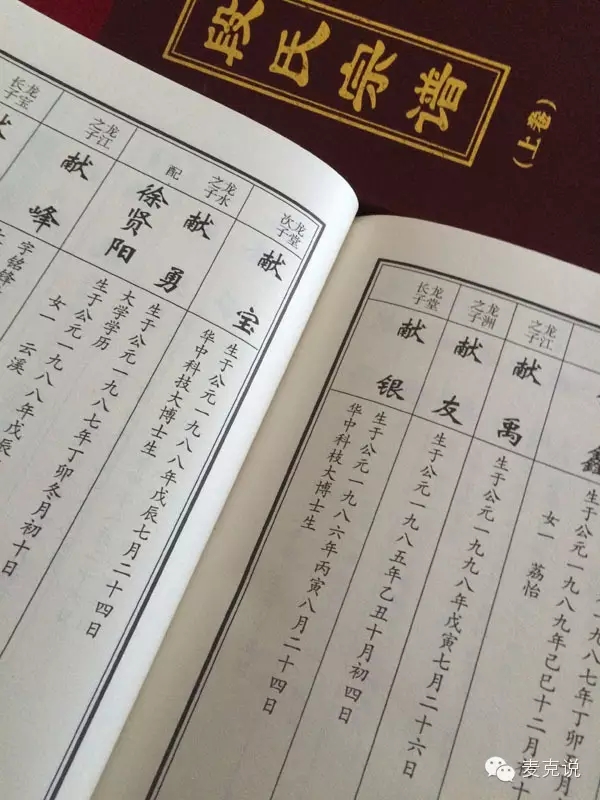 段氏宗谱
(上卷)
鑫
生于公元一九八七年丁卯
生于公元一九八九年己巳十二月
女一 荔怡
龙江之子
献禹
生于公元一九九八年戊寅七月二十六日
龙洲之子
献友
生于公元一九八五年乙丑十月初四日
龙堂长子
献银
生于公元一九八六年丙寅八月二十四日
华中科技大博士生
龙堂次子
献宝
生于公元一九八八年戊辰七月二十四日
华中科技大博士生
龙水之子
献勇
配
徐贤阳
生于公元一九八七年丁卯冬月初十日
大学学历
生于公元一九八八年戊辰
女一 云溪
龙江之子
献峰
字铭锋
龙宝长子
献
麦克说